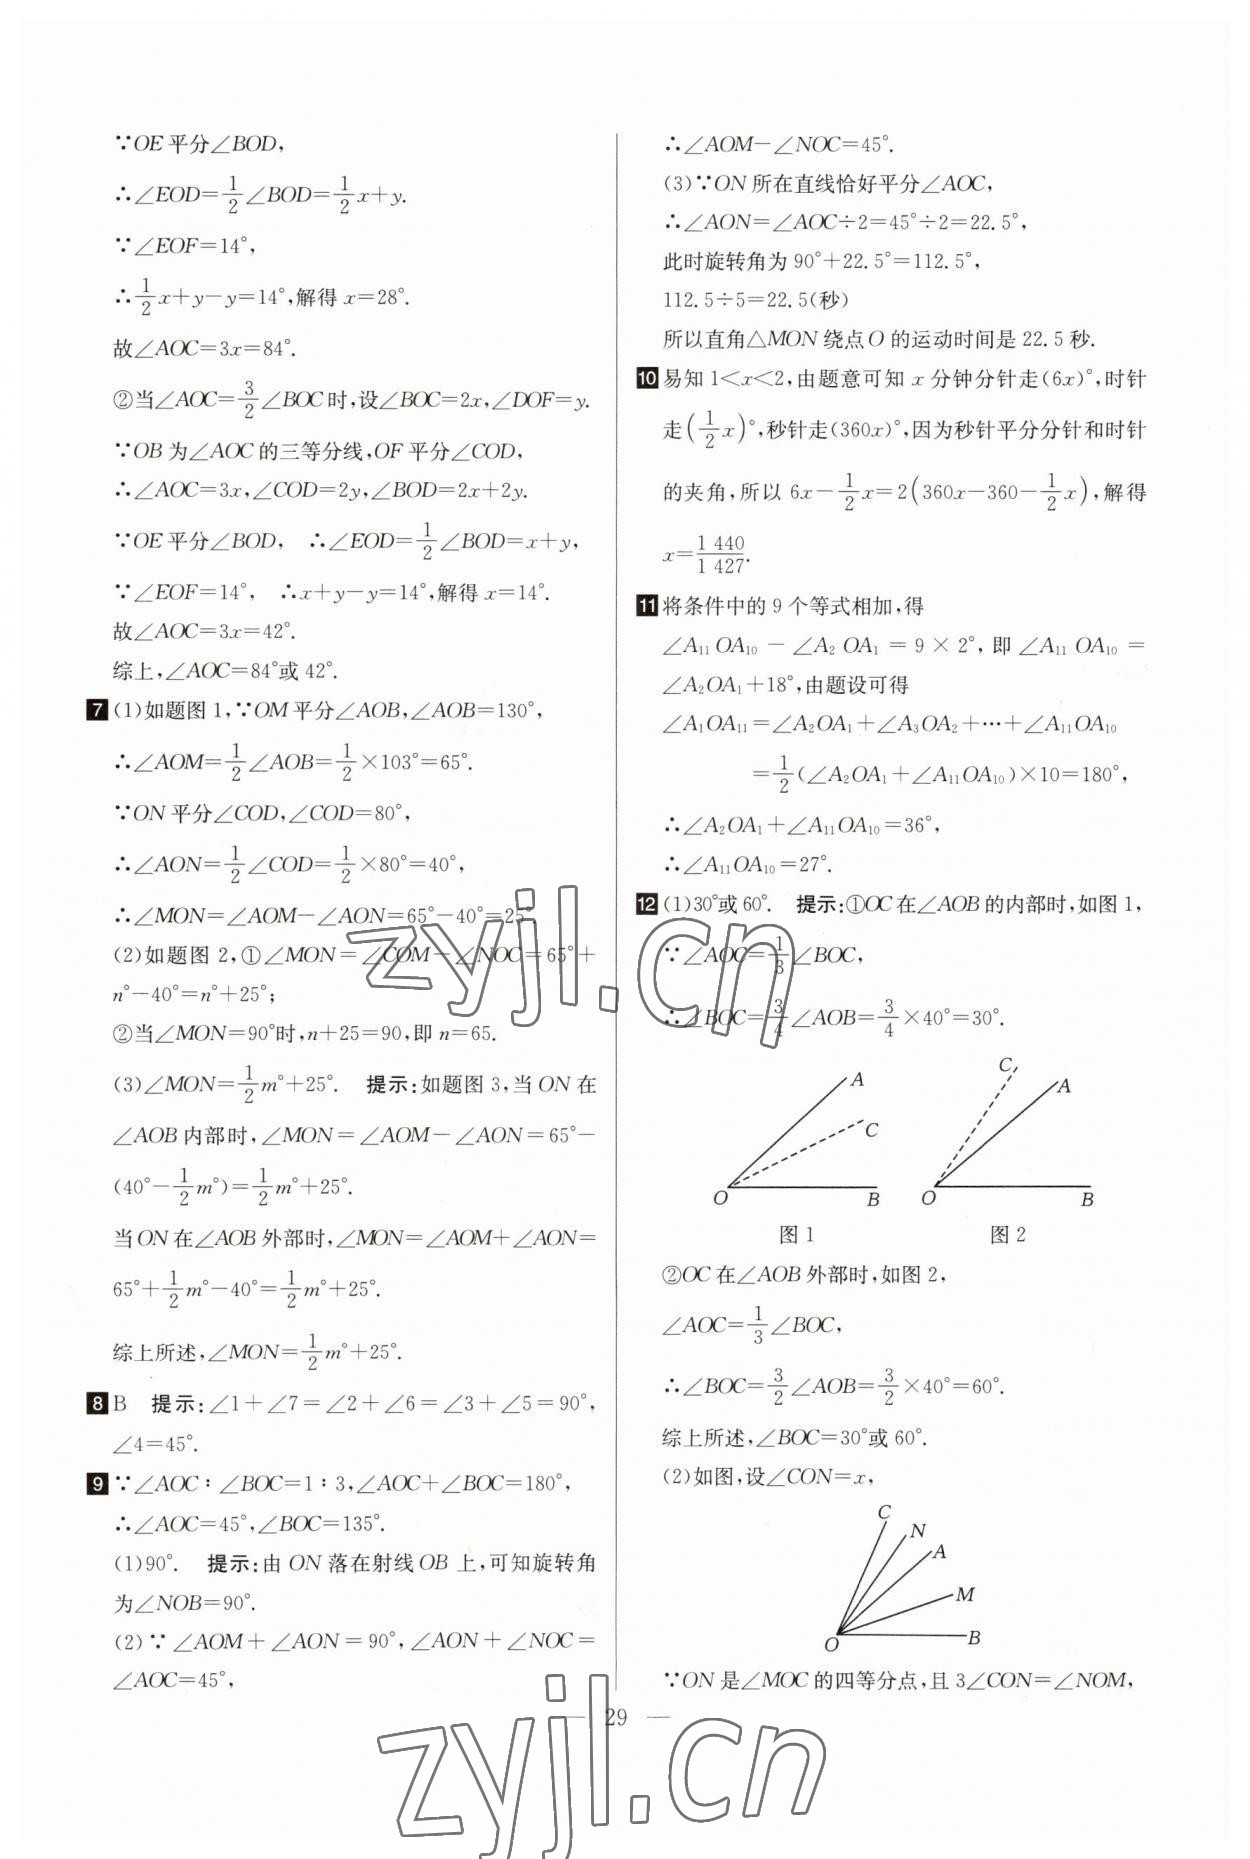 ∵OE平分∠BOD,
∴∠EOD=1/2∠BOD=1/2x+y.
∵∠EOF=14°,
∴1/2x+y-y=14°,解得x=28°.
故∠AOC=3x=84°.
②当∠AOC=3/2∠BOC时,设∠BOC=2x,∠DOF=y.
∵OB为∠AOC的三等分线,OF平分∠COD,
∴∠AOC=3x,∠COD=2y,∠BOD=2x+2y.
∵OE平分∠BOD, ∴∠EOD=1/2∠BOD=x+y,
∵∠EOF=14°, ∴x+y-y=14°,解得x=14°.
故∠AOC=3x=42°.
综上,∠AOC=84°或42°.
7 (1)如题图1,∵OM平分∠AOB,∠AOB=130°,
∴∠AOM=1/2∠AOB=1/2×103°=65°.
∵ON平分∠COD,∠COD=80°,
∴∠AON=1/2∠COD=1/2×80°=40°,
∴∠MON=∠AOM-∠AON=65°-40°=25°.
(2)如题图2,①∠MON=∠COM-∠NOC=65°+
n°-40°=n°+25°;
②当∠MON=90°时,n+25=90,即n=65.
(3)∠MON=1/2m°+25°. 提示:如题图3,当ON在
∠AOB内部时,∠MON=∠AOM-∠AON=65°-
(40°-1/2m°)=1/2m°+25°.
当ON在∠AOB外部时,∠MON=∠AOM+∠AON=
65°+1/2m°-40°=1/2m°+25°.
综上所述,∠MON=1/2m°+25°.
8 B 提示:∠1+∠7=∠2+∠6=∠3+∠5=90°,
∠4=45°.
9 ∵∠AOC:∠BOC=1:3,∠AOC+∠BOC=180°,
∴∠AOC=45°,∠BOC=135°.
(1)90°. 提示:由ON落在射线OB上,可知旋转角
为∠NOB=90°.
(2)∵∠AOM+∠AON=90°,∠AON+∠NOC=
∠AOC=45°,
∴∠AOM-∠NOC=45°.
(3)∵ON所在直线恰好平分∠AOC,
∴∠AON=∠AOC÷2=45°÷2=22.5°,
此时旋转角为90°+22.5°=112.5°,
112.5÷5=22.5(秒)
所以直角△MON绕点O的运动时间是22.5秒.
10 易知1<x<2,由题意可知x分钟分针走(6x)°,时针
走(1/2x)°,秒针走(360x)°,因为秒针平分分针和时针
的夹角,所以6x-1/2x=2(360x-360-1/2x),解得
x=1 440/1 427.
11 将条件中的9个等式相加,得
∠A₁₁OA₁₀-∠A₂OA₁=9×2°,即∠A₁₁OA₁₀=
∠A₂OA₁+18°,由题设可得
∠A₁OA₁₁=∠A₂OA₁+∠A₃OA₂+⋯+∠A₁₁OA₁₀
=1/2(∠A₂OA₁+∠A₁₁OA₁₀)×10=180°,
∴∠A₂OA₁+∠A₁₁OA₁₀=36°,
∴∠A₁₁OA₁₀=27°.
12 (1)30°或60°. 提示:①OC在∠AOB的内部时,如图1,
∵∠AOC=1/3∠BOC,
∴∠BOC=3/4∠AOB=3/4×40°=30°.
A C O B
图1
C A O B
图2
②OC在∠AOB外部时,如图2,
∠AOC=1/3∠BOC,
∴∠BOC=3/2∠AOB=3/2×40°=60°.
综上所述,∠BOC=30°或60°.
(2)如图,设∠CON=x,
C N A M O B
∵ON是∠MOC的四等分点,且3∠CON=∠NOM,
29
zyjl.cn
zyjl.cn